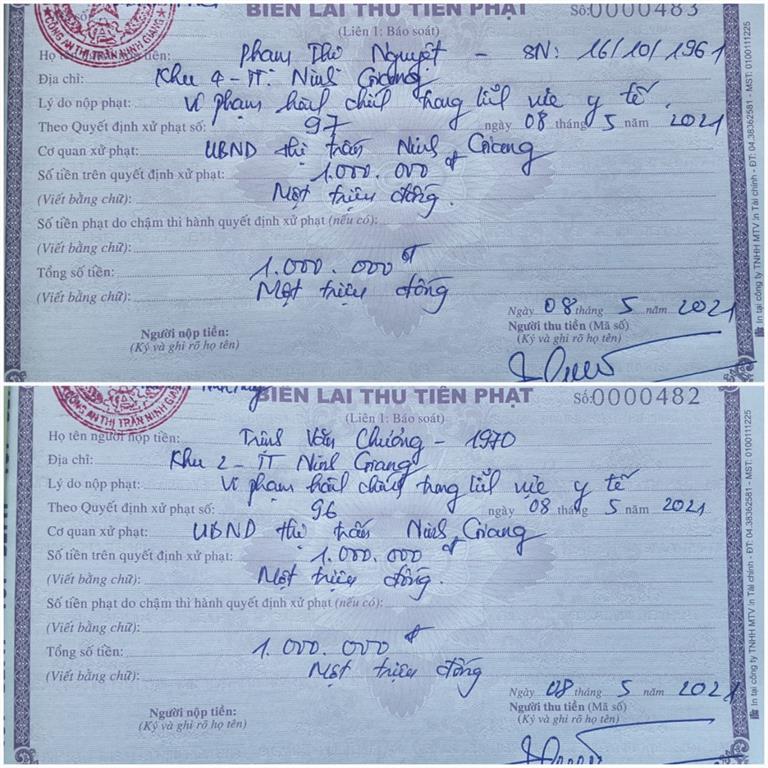 BIÊN LAI THU TIỀN PHẠT Số: 0000483
(Liên 1: Báo soát)
CÔNG AN THỊ TRẤN NINH GIANG
Họ tiền: Phạm Thị Nguyệt - SN: 16/10/1961
Địa chỉ: Khu 4 - TT. Ninh Giang
Lý do nộp phạt: Vi phạm hành chính trong lĩnh vực y tế.
Theo Quyết định xử phạt số: 97 ngày 08 tháng 5 năm 2021
Cơ quan xử phạt: UBND thị trấn Ninh Giang
Số tiền trên quyết định xử phạt: 1.000.000đ
(Viết bằng chữ): Một triệu đồng.
Số tiền phạt do chậm thi hành quyết định xử phạt (nếu có):
(Viết bằng chữ):
Tổng số tiền: 1.000.000đ
(Viết bằng chữ): Một triệu đồng
Ngày 08 tháng 5 năm 2021
Người nộp tiền: Người thu tiền (Mã số)
(Ký và ghi rõ họ tên) (Ký và ghi rõ họ tên)
In tại công ty TNHH MTV In Tài chính - ĐT: 04.38362581 - MST: 0100111225
BIÊN LAI THU TIỀN PHẠT Số: 0000482
(Liên 1: Báo soát)
CÔNG AN THỊ TRẤN NINH GIANG
Họ tên người nộp tiền: Trịnh Văn Chưởng - 1970
Địa chỉ: Khu 2 - TT Ninh Giang
Lý do nộp phạt: Vi phạm hành chính trong lĩnh vực y tế
Theo Quyết định xử phạt số: 96 ngày 08 tháng 5 năm 2021
Cơ quan xử phạt: UBND thị trấn Ninh Giang
Số tiền trên quyết định xử phạt: 1.000.000đ
(Viết bằng chữ): Một triệu đồng.
Số tiền phạt do chậm thi hành quyết định xử phạt (nếu có):
(Viết bằng chữ):
Tổng số tiền: 1.000.000đ
(Viết bằng chữ): Một triệu đồng
Ngày 08 tháng 5 năm 2021
Người nộp tiền: Người thu tiền (Mã số)
(Ký và ghi rõ họ tên) (Ký và ghi rõ họ tên)
In tại công ty TNHH MTV In Tài chính - ĐT: 04.38362581 - MST: 0100111225